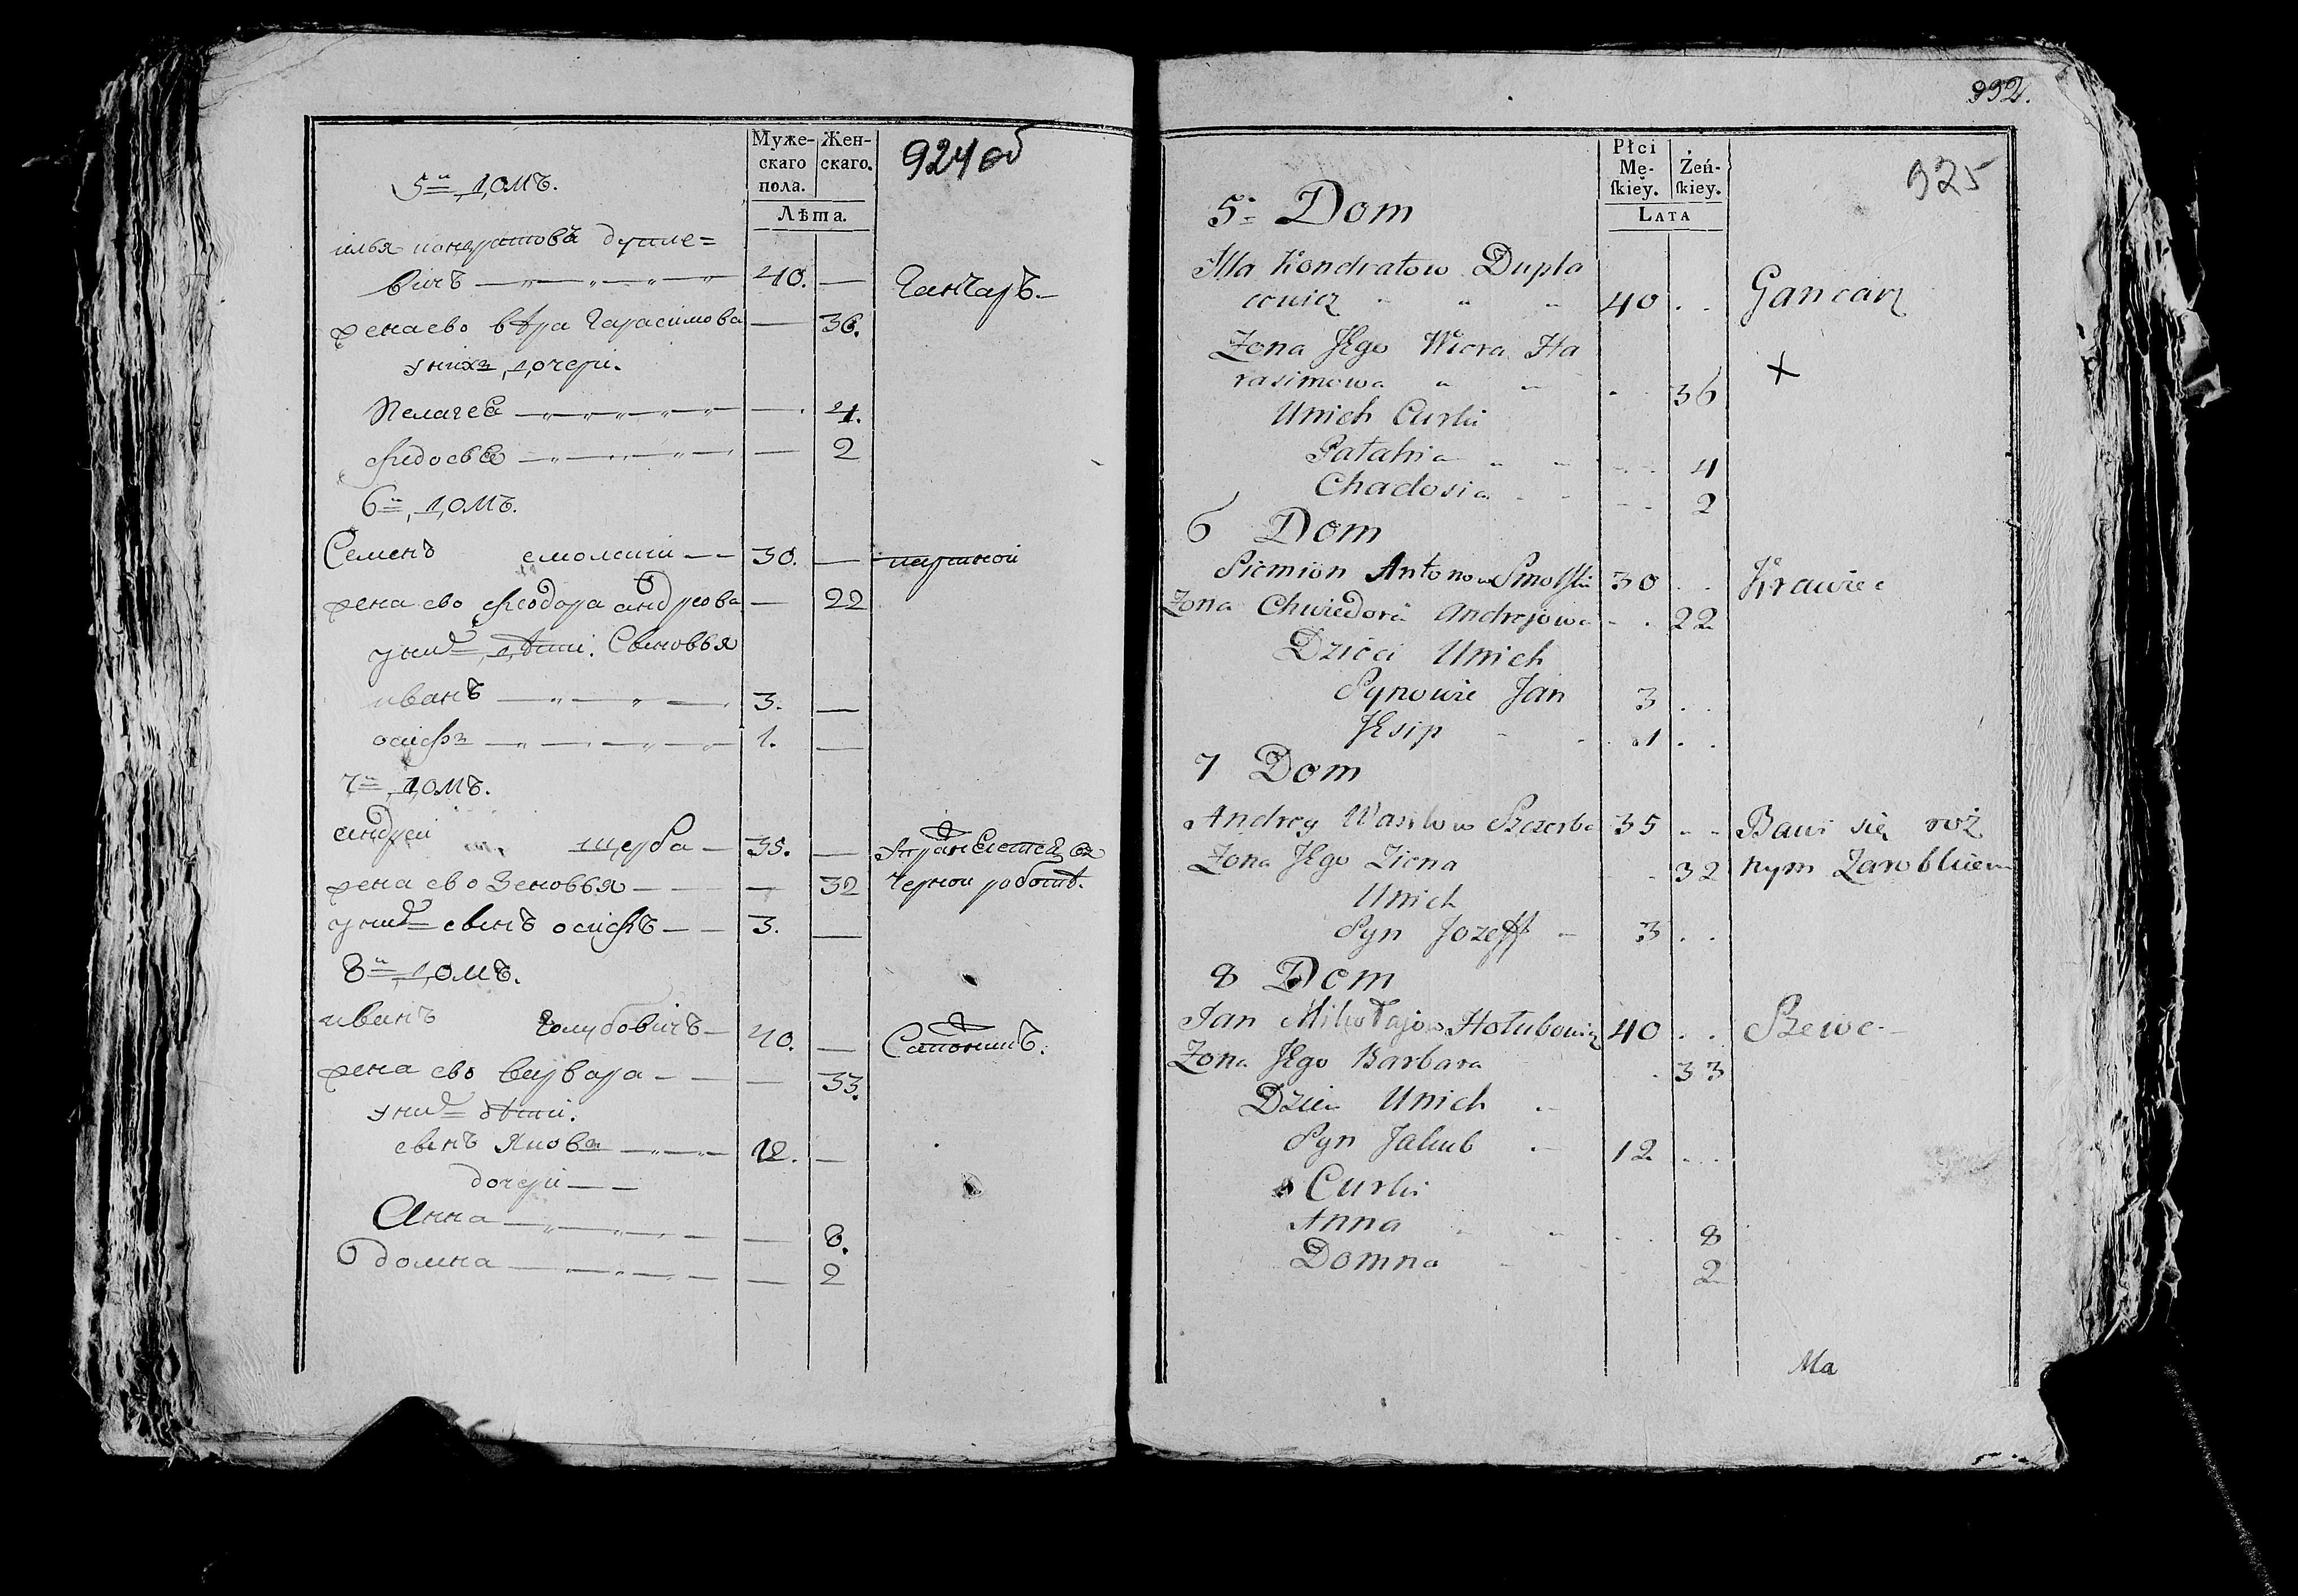 924 об
Муже-
скаго
пола.
Жен-
скаго.
Лѣта.
5й домъ.
илья кондратовъ дупле=
вичъ 40. — Ганчаръ
жена ево вѣра Гарасимова — 36.
у нихъ дочери.
Пелагея — 4.
Фидосья — 2
6й домъ.
Семенъ смолски 30. — партной
жена ево Феодора андреова — 22
у них дѣти. Сыновья
иванъ 3. —
осифъ 1. —
7й домъ.
андрей щерба 35. —
жена ево Зеновья — 32 черной работѣ.
у них сынъ осифъ 3. —
8й домъ.
иванъ Голубовичъ 40. — Сапожникъ.
жена ево варвара — 33.
у них дѣти.
сынъ яковъ 12. —
дочери
Анна — 8.
домна — 2
992.
925
Płci
Mę-
skiey.
Żeń-
skiey.
Lata
5 Dom
Illa Kondratow Dupla
cowicz 40 Gancarz
Zona Jego Wiera Ha
rasimowa 36
Unich Curki
Patahia 4
Chadosia 2
6 Dom
Siemion Antonow Smolski 30 Krawiec
Zona Chwiedora Andrejowa 22
Dzieci Unich
Synowie Jan 3
Jesip 1
7 Dom
Andrey Wasilow Szczerba 35 Bawi się roż
Zona Jego Ziena 32 nym Zarobkiem
Unich
Syn Jozeff 3
8 Dom
Jan Mikołajow Hołubowicz 40 Szewc
Zona Jego Barbara 33
Dzieci Unich
Syn Jakub 12
Curki
Anna 8
Domna 2
Ma